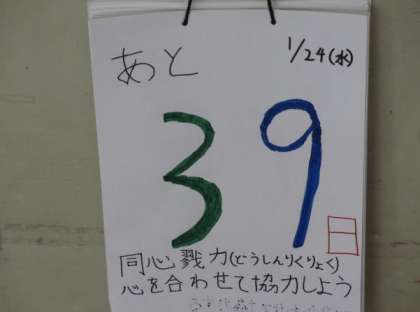 1/24(水)
あと
39日
同心戮力(どうしんりくりょく)
心を合わせて協力しよう